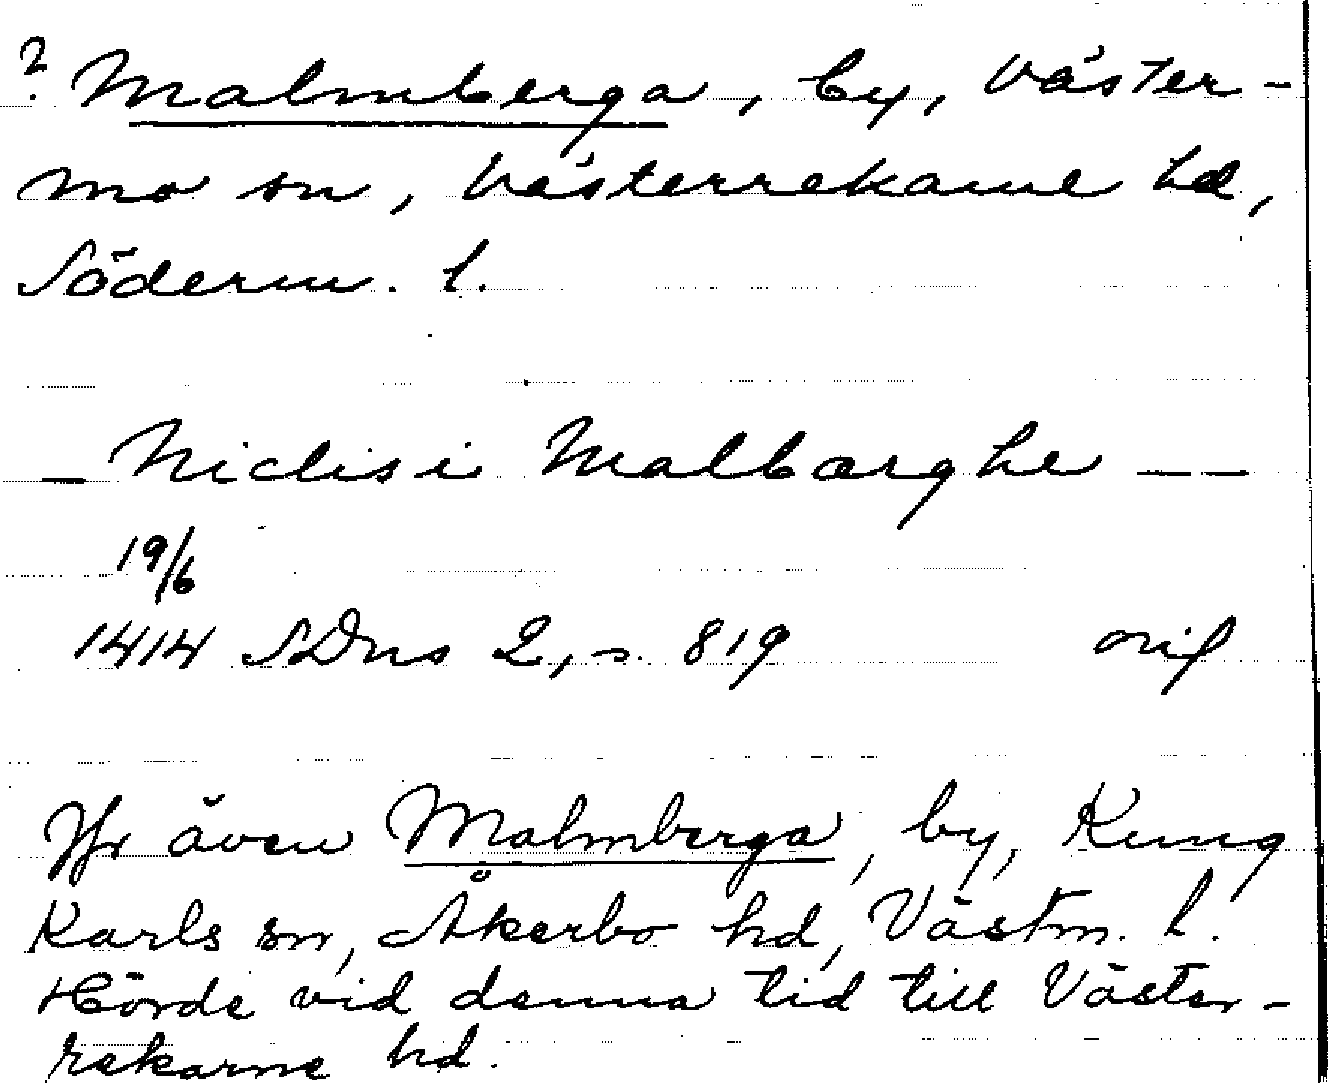 ? Malmberga, by, Väster-
mo sn, Västerrekarne hd,
Söderm. l.
— Niclis i Malbærghe — —
19/6
1414 SDns 2, s. 819 orig
Jfr även Malmberga, by, Kung
Karls sn, Åkerbo hd, Västm. l.
Hörde vid denna tid till Väster-
rekarne hd.